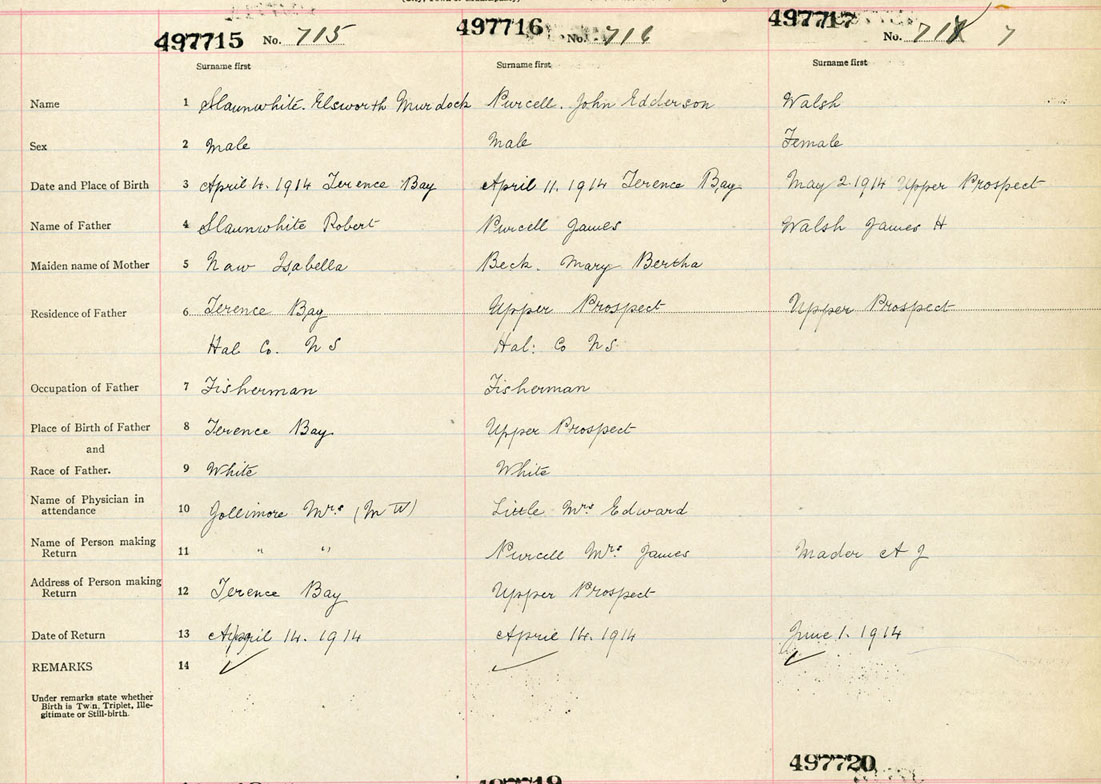 497715 No. 715 497716 No. 716 497717 No. 717 7
Surname first Surname first Surname first
Name 1 Slaunwhite. Elsworth Murdock Purcell. John Edderson Walsh
Sex 2 Male Male Female
Date and Place of Birth 3 April 4. 1914 Terence Bay April 11. 1914 Terence Bay May 2 1914 Upper Prospect
Name of Father 4 Slaunwhite Robert Purcell James Walsh James H
Maiden name of Mother 5 Naw Isabella Beck. Mary Bertha
Residence of Father 6 Terence Bay Upper Prospect Upper Prospect
Hal Co. N S Hal: Co N S
Occupation of Father 7 Fisherman Fisherman
Place of Birth of Father 8 Terence Bay Upper Prospect
and
Race of Father. 9 White White
Name of Physician in
attendance 10 Jollimore Mrs (M W) Little Mrs Edward
Name of Person making
Return 11 " " Purcell Mrs James Mader A J
Address of Person making
Return 12 Terence Bay Upper Prospect
Date of Return 13 April 14. 1914 April 14. 1914 June 1. 1914
REMARKS 14
Under remarks state whether
Birth is Twin, Triplet, Ille-
gitimate or Still-birth.
497720